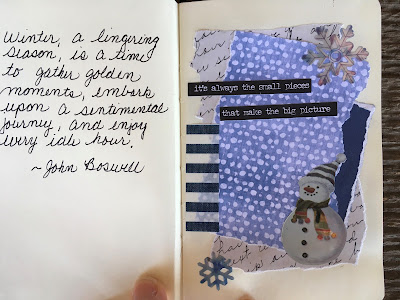 Winter, a lingering
season, is a time
to gather golden
moments, embark
upon a sentimental
journey, and enjoy
every idle hour.
~John Boswell
it's always the small pieces
that make the big picture